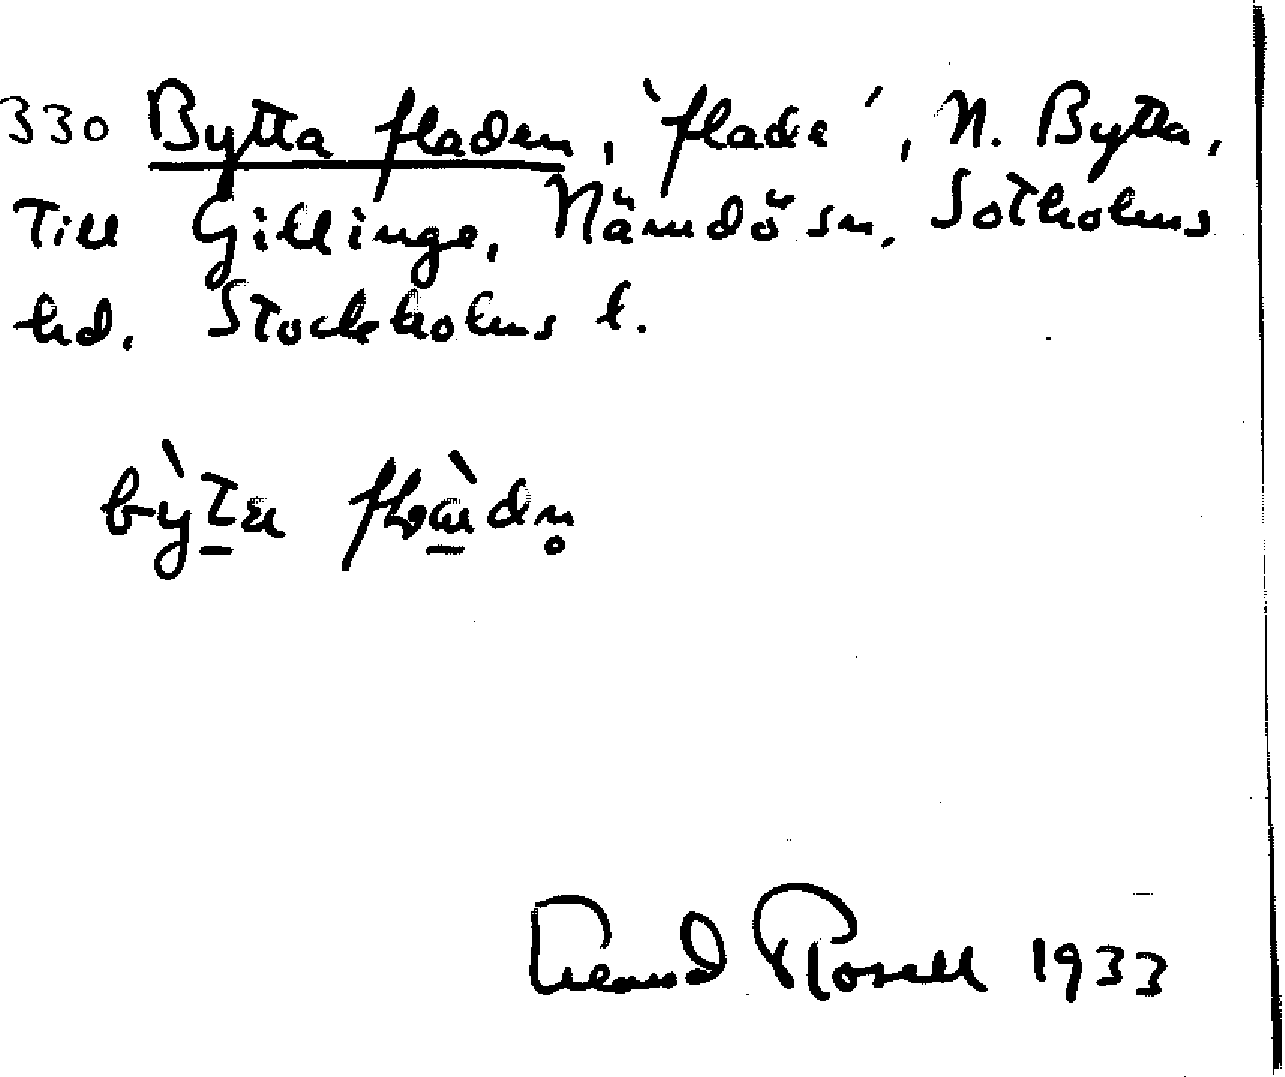 330 Bytta fladen, 'flade', N. Bytta,
Till Gillinge, Nämdö sn, Sotholms
hd. Stockholms l.
Rosell 1933